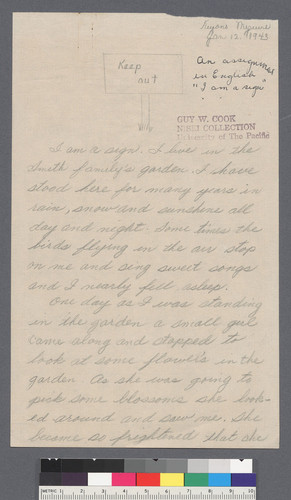 Jan. 12, 1943
An assignment
in English
"I am a sign"
Keep
out
GUY W. COOK
NISEI COLLECTION
University of The Pacific
I am a sign. I live in the
Smith family's garden. I have
stood here for many years in
rain, snow and sunshine all
day and night. Some times the
birds flying in the air stop
on me and sing sweet songs
and I nearly fell asleep.
One day as I was standing
in the garden a small girl
came along and stopped to
look at some flowers in the
garden. As she was going to
pick some blossoms she look-
ed around and saw me. She
became so frightened that she